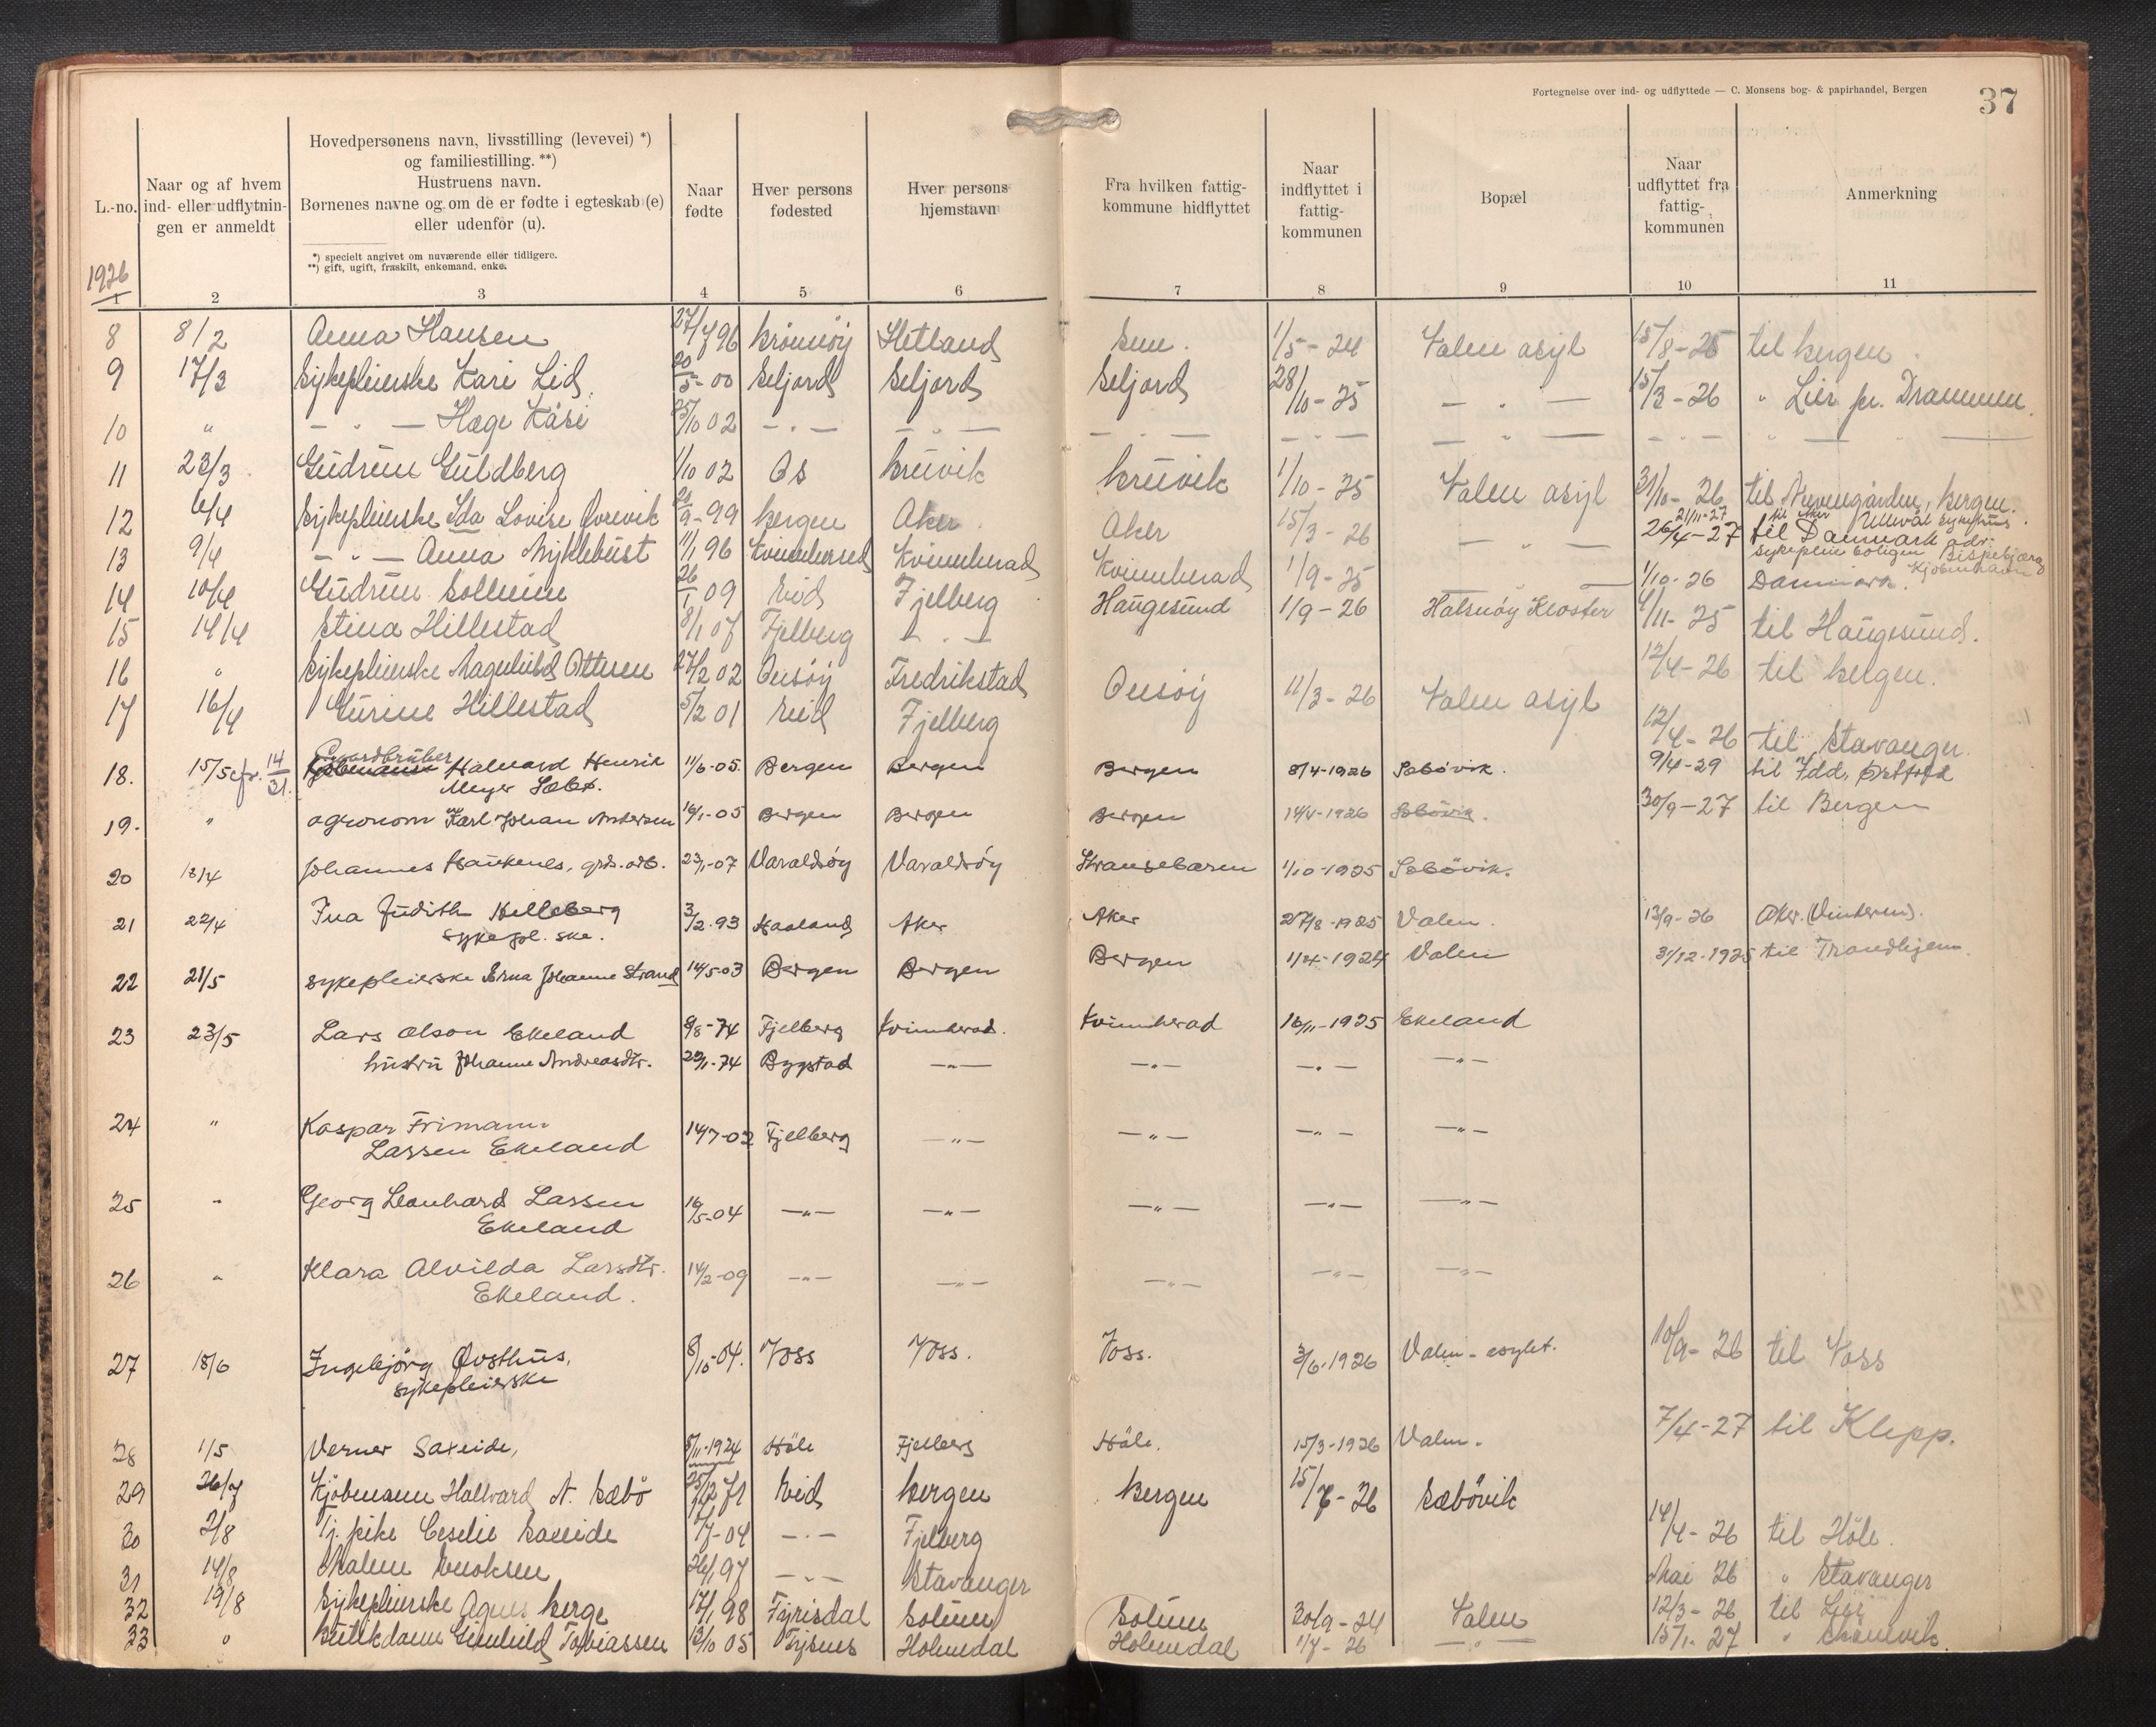 Fortegnelse over ind- og udflyttede — C. Monsens bog- & papirhandel, Bergen
37
L.-no.
Naar og af hvem ind- eller udflytnin- gen er anmeldt
Hovedpersonens navn, livsstilling (levevei) *)
og familiestilling. **)
Hustruens navn.
Børnenes navne og om de er fødte i egteskab (e)
eller udenfor (u).
*) specielt angivet om nuværende eller tidligere.
**) gift, ugift, fraskilt, enkemand, enke.
Naar fødte
Hver persons fødested
Hver persons hjemstavn
Fra hvilken fattig- kommune hidflyttet
Naar indflyttet i fattig- kommunen
Bopæl
Naar udflyttet fra fattig- kommunen
Anmerkning
1926
1 2 3 4 5 6 7 8 9 10 11
8 8/2 Anna Hansen 27/7 96 Hetland 1/5-24 Valen asyl 15/8-25 til Bergen
9 17/3 Sykepleierske Kari Lid 20/5-00 Seljord Seljord Seljord 28/10-25 — " — 15/3-26 " Lier pr. Drammen
10 " — " — Hæge Kåsi 25/10 02 — " — — " — — " — — " — — " — — " — " — —
11 23/3 Gudrun Guldberg 1/10 02 Os Bruvik Bruvik 1/10-25 Valen asyl 31/10-26 til Bergen.
12 6/4 Sykepleierske Ida Lovise Øvrevik 21/9-99 Bergen Aker Aker 15/3-26 — " — 21/11-27 til Aker Ullevål Sykehus
13 9/4 — " — Anna Myklebust 11/1 96 Kvinnherad Kvinnherad Kvinnherad 1/9-25 26/4-27 til Danmark adr. sykepleie boligen Bispebjærg Kjøbenhavn
14 10/4 Gudrun Solheim 26/1 09 Eid Fjelberg Haugesund 1/9-26 Halsnøy Kloster 1/10-26 Danmark.
15 14/4 Stina Hillestad 8/1 07 Fjelberg — " — 4/11-25 til Haugesund.
16 " Sykepleierske Magnhild Ottesen 27/2 02 Onsøy Fredrikstad Onsøy 11/3-26 Valen asyl 12/4-26 til Bergen.
17 16/4 Gurine Hillestad 5/2 01 Eid Fjelberg 12/4-26 til Stavanger.
18. 15/5 cfr. 14/31. Gaardbruker Halvard Henrik 11/6-05. Bergen Bergen Bergen 8/4-1926 Sæbövik. 9/4-29 til Idd, Østfold
Meyer Sæbö.
19. " agronom Karl Johan Andersen 16/1-05 Bergen Bergen Bergen 14/4-1926 Sæbövik. 30/9-27 til Bergen
20 18/4 Johannes Haukenes, grds.arb. 23/1-07 Varaldsöy Varaldsöy Strandebarm 1/10-1925 Sæbövik.
21 22/4 Ina Judith Helleberg 3/2-93 Haaland Aker Aker 27/8-1925 Valen. 13/9-26 Aker. (Vinderen).
sykepl. ske.
22 21/5 Sykepleierske Erna Johanne Strand 14/5-03 Bergen Bergen Bergen 1/4-1924 Valen 31/12-1925 til Trondhjem.
23 23/5 Lars Olson Ekeland 8/8-74 Fjelberg Kvinnherad. Kvinnherad 16/11-1925 Ekeland
hustru Johanne Andreasdtr. 29/1-74 Bygstad — " — — " — — " — — " —
24 " Kaspar Frimann 14/7-02 Fjelberg — " — — " — — " — — " —
Lassen Ekeland
25 " Georg Leonhard Lassen 16/5-04 — " — — " — — " — — " — — " —
Ekeland
26 " Klara Alvilda Larsdtr. 14/2-09 — " — — " — — " — — " — — " —
Ekeland.
27 18/6 Ingebjörg Øvsthus, 8/10-04. Voss Voss. Voss. 3/6-1926 Valen-asylet. 10/9-26 til Voss
sykepleierske
28 1/5 Verner Saxeide, 5/11-1924 Höle Fjelberg Höle. 15/3-1926 Valen. 7/4-27 til Klepp.
29 26/7 Kjöbmann Hallvard N. Sæbö 25/12 71 Eid Bergen Bergen 15/7-26 Sæbövik
30 2/8 Tj. pike Ceselie Saxeide 1/7-04 — " — Fjelberg 14/4-26 til Höle.
31 14/8 Malene Enoksen 26/1 97 — " — Stavanger Mai 26 " Stavanger
32 19/8 Sykepleierske Agnes Berge 17/1 98 Fyrisdal Solum Solum 30/9-24 Valen 12/3-26 til Lier
33 " Budikdame Gunhild Tobiassen 13/10 05 Tysnes Holmedal Holmedal 1/7-26 — " — 15/1-27 " Skånevik.